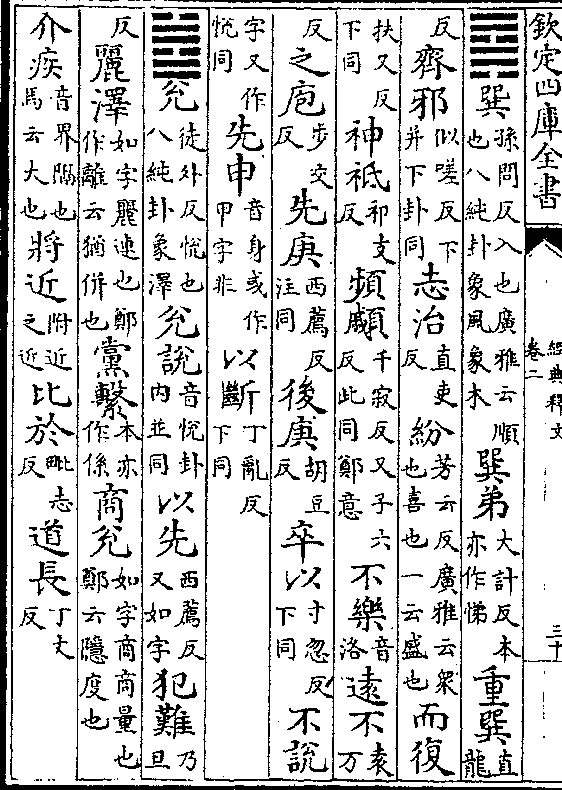 欽定四庫全書 經典釋文 卷二 三十
䷸巽孫問反入也廣雅云順也八純卦象風象木巽弟大計反本亦作悌重巽直龍
反齊邪似嗟反下并下卦同志治直吏反紛芳云反廣雅云衆也喜也一云盛也而復
扶又反下同神祗祁支反頻顣千寂反又子六反此同鄭意不樂音洛遠不袁万
反之庖步交反先庚西薦反注同後庚胡豆反卒以寸忽反下同不說
字又作悅同先申音身或作甲字非以斷丁亂反下同
䷹兌徒外反悅也八純卦象澤兌說音悅卦内並同以先西薦反又如字犯難乃旦
反麗澤如字麗連也鄭作離云猶併也黨繫本亦作係商兌如字商商量也鄭云隱度也
介疾音界隔也馬云大也將近附近之近比於毗志反道長丁丈反